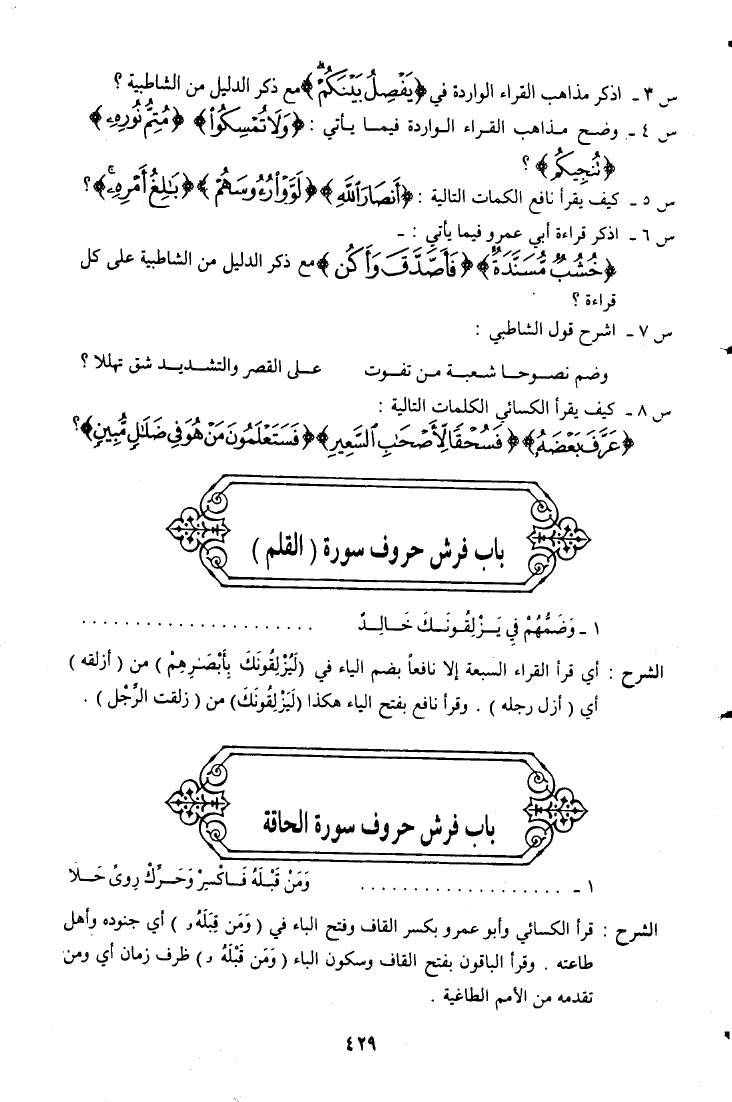 س ٣ - اذكر مذاهب القراء الواردة في ﴿يَفْصِلُ بَيْنَكُمْ﴾ مع ذكر الدليل من الشاطبية ؟
س ٤ - وضح مذاهب القراء الواردة فيما يأتي : ﴿وَلَا تُمْسِكُوا۟﴾ ﴿مُتِمُّ نُورِهِۦ﴾
﴿تُنجِيكُم﴾ ؟
س ٥ - كيف يقرأ نافع الكمات التالية : ﴿أَنصَارَ ٱللَّهِ﴾ ﴿لَوَّوْا۟ رُءُوسَهُمْ﴾ ﴿بَٰلِغُ أَمْرِهِۦ﴾ ؟
س ٦ - اذكر قراءة أبي عمرو فيما يأتي : -
﴿خُشُبٌ مُّسَنَّدَةٌ﴾ ﴿فَأَصَّدَّقَ وَأَكُن﴾ مع ذكر الدليل من الشاطبية على كل
قراءة ؟
س ٧ - اشرح قول الشاطبي :
وضم نصوحا شعبة من تفوت على القصر والتشديد شق تهللا ؟
س ٨ - كيف يقرأ الكسائي الكلمات التالية :
﴿عَرَّفَ بَعْضَهُۥ﴾ ﴿فَسُحْقًا لِّأَصْحَٰبِ ٱلسَّعِيرِ﴾ ﴿فَسَتَعْلَمُونَ مَنْ هُوَ فِى ضَلَٰلٍ مُّبِينٍ﴾ ؟
باب فرش حروف سورة ( القلم )
١ - وَضَمُّهُمْ فِي يَزْلِقُونَكَ خَالِدٌ . . . . . . . . . . . . . . . . . . . . .
الشرح : أي قرأ القراء السبعة إلا نافعاً بضم الياء في (لَيُزْلِقُونَكَ بِأَبْصَٰرِهِمْ ) من ( أزلقه )
أي ( أزل رجله ) . وقرأ نافع بفتح الياء هكذا (لَيَزْلِقُونَكَ) من ( زلقت الرِّجْل ) .
باب فرش حروف سورة الحاقة
١ - . . . . . . . . . . . . . . . . . . . وَمَنْ قَبْلَهُ فَاكْسِرْ وَحَرِّكْ رِوىً حَلا
الشرح : قرأ الكسائي وأبو عمرو بكسر القاف وفتح الباء في ( وَمَن قِبَلَهُۥ ) أي جنوده وأهل
طاعته . وقرأ الباقون بفتح القاف وسكون الباء ( وَمَن قَبْلَهُ ۥ) ظرف زمان أي ومن
تقدمه من الأمم الطاغية .
٤٢٩